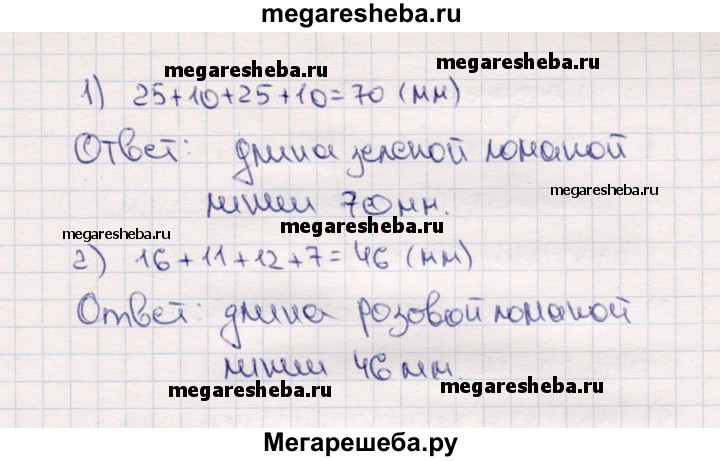 megaresheba.ru
megaresheba.ru
megaresheba.ru
1) 25+10+25+10=70 (мм)
Ответ: длина зеленой ломаной
megaresheba.ru
линии 70мм.
megaresheba.ru
megaresheba.ru
2) 16+11+12+7=46 (мм)
Ответ: длина розовой ломаной
линии 46 мм.
megaresheba.ru
megaresheba.ru
megaresheba.ru
Мегарешеба.ру